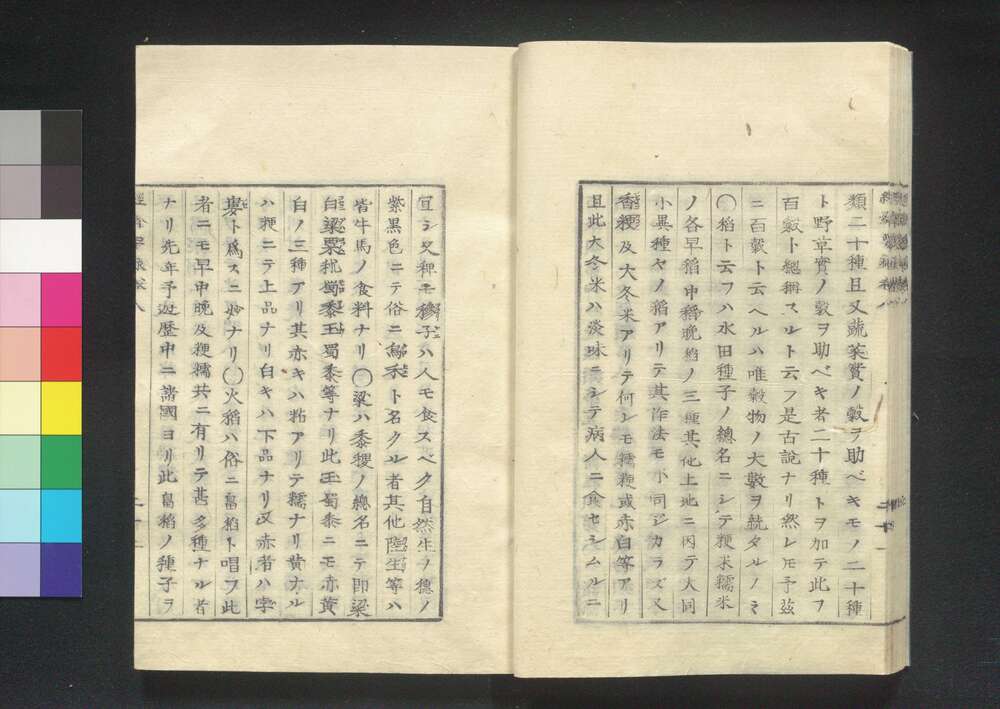 類二十種且又蔬菜實ノ穀ヲ助ベキモノ二十種
ト野草實ノ穀ヲ助ベキ者二十種トヲ加テ此ヲ
百穀ト總稱スルト云フ是古說ナリ然レ𪜈予茲
ニ百穀ト云ヘルハ唯穀物ノ大數ヲ統タルノミ
〇稻ト云フハ水田種子ノ總名ニシテ粳米糯米
ノ各早稻中稻晩稻ノ三種其他土地ニ因テ大同
小異種々ノ稻アリテ其作法モ小同ジカラズ又
香粳及大冬米アリテ何レモ糯粳或赤白等アリ
且此大冬米ハ淡味ニシテ病人ニ食セシムルニ
宜シ又稗モ穇子ハ人モ食スベク自然生ヲ穂ノ
紫黑色ニテ俗ニ烏禾ト名クル者其他陸生等ハ
皆牛馬ノ食料ナリ〇粱ハ黍稷ノ總名ニテ即粱
白粱粟秫蜀黍玉蜀黍等ナリ此玉蜀黍ニモ赤黄
白ノ三種アリ其赤キハ粘アリテ糯ナリ黄ナル
ハ粳ニテ上品ナリ白キハ下品ナリ又赤者ハ字
ト爲スニ妙ナリ〇火稻ハ俗ニ畠稻ト唱フ此
者ニモ早中晩及粳糯共ニ有リテ甚多種ナル者
ナリ先年予遊歷中ニ諸國ヨリ此畠稻ノ種子ヲ